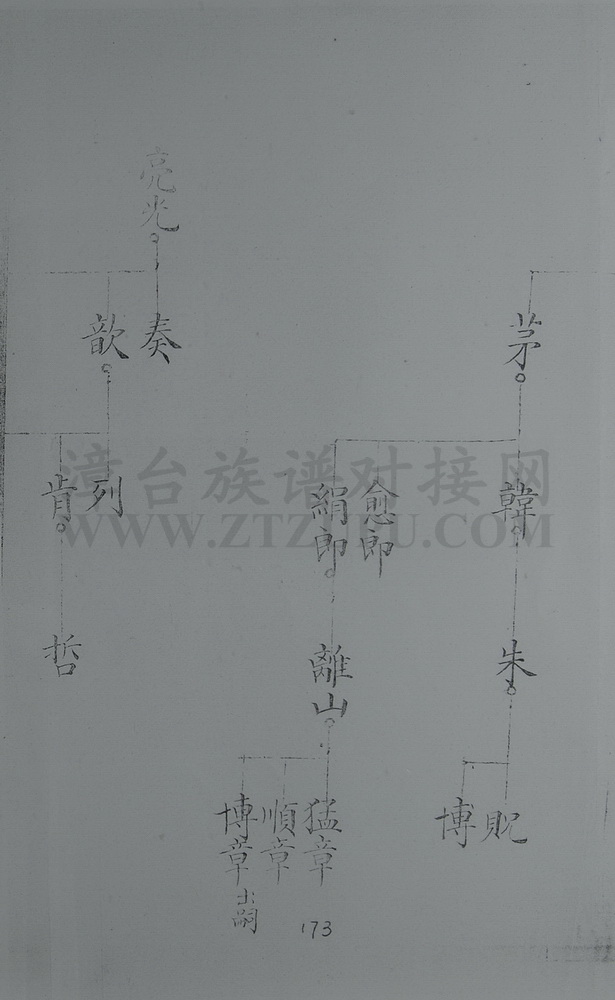 亮光
奏
歆
茅
列
肯
愈郎
絹郎
韓
哲
離山
朱
猛章
順章
博章
出嗣
博
173
漳台族谱对接网
WWW.ZTZUPU.COM